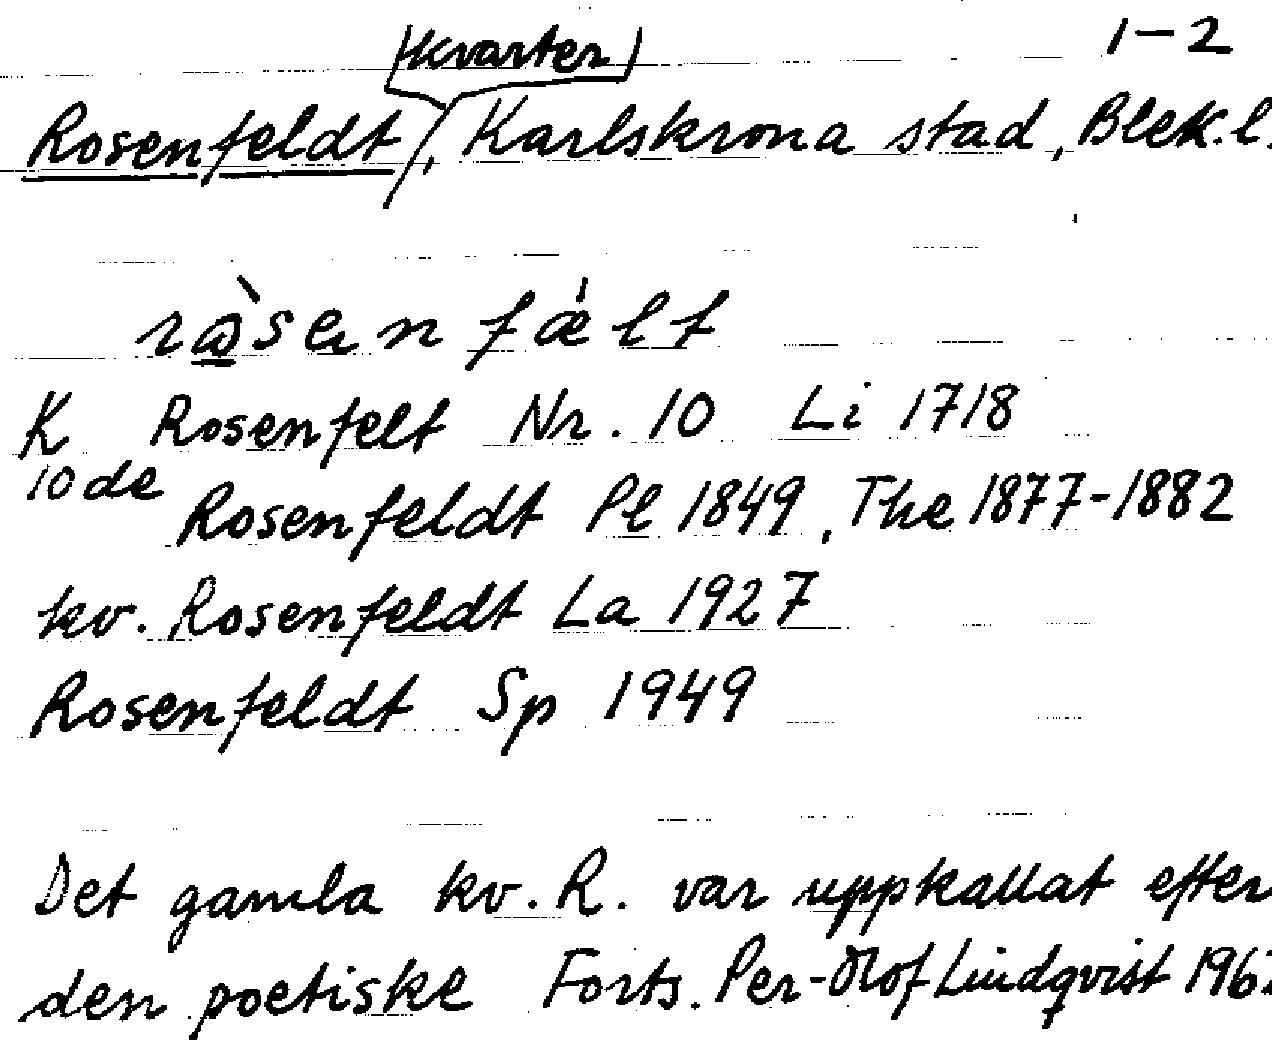 (kvarter) 1-2
Rosenfeldt, Karlskrona stad, Blek.l.
K Rosenfelt Nr. 10 Li 1718
10de
Rosenfeldt Pl 1849, The 1877-1882
kv. Rosenfeldt La 1927
Rosenfeldt Sp 1949
Det gamla kv. R. var uppkallat efter
den poetiske Forts. Per-Olof Lindqvist